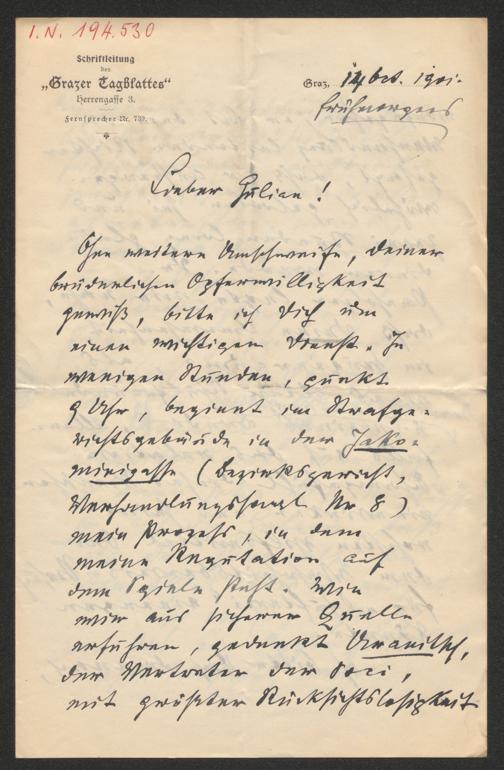 I.N. 194.530
Schriftleitung
des
„Grazer Tagblattes“
Herrengasse 3.
Fernsprecher Nr. 739.
Graz, 14 Oct. 1901.
frühmorgens
Lieber Julian!
Ohne weitere Umschweife, deiner
brüderlichen Opferwilligkeit
gewiß, bitte ich Dich um
einen wichtigen Dienst. In
wenigen Stunden, punkt
9 Uhr, beginnt im Strafge-
richtsgebäude in der Jako-
minigasse (Bezirksgericht,
Verhandlungssaal Nr 8)
mein Prozeß, in dem
meine Reputation auf
dem Spiele steht. Wie
wir aus sicherer Quelle
erfuhren, gedenkt
der Vertreter der Soci,
mit größter Rücksichtslosigkeit